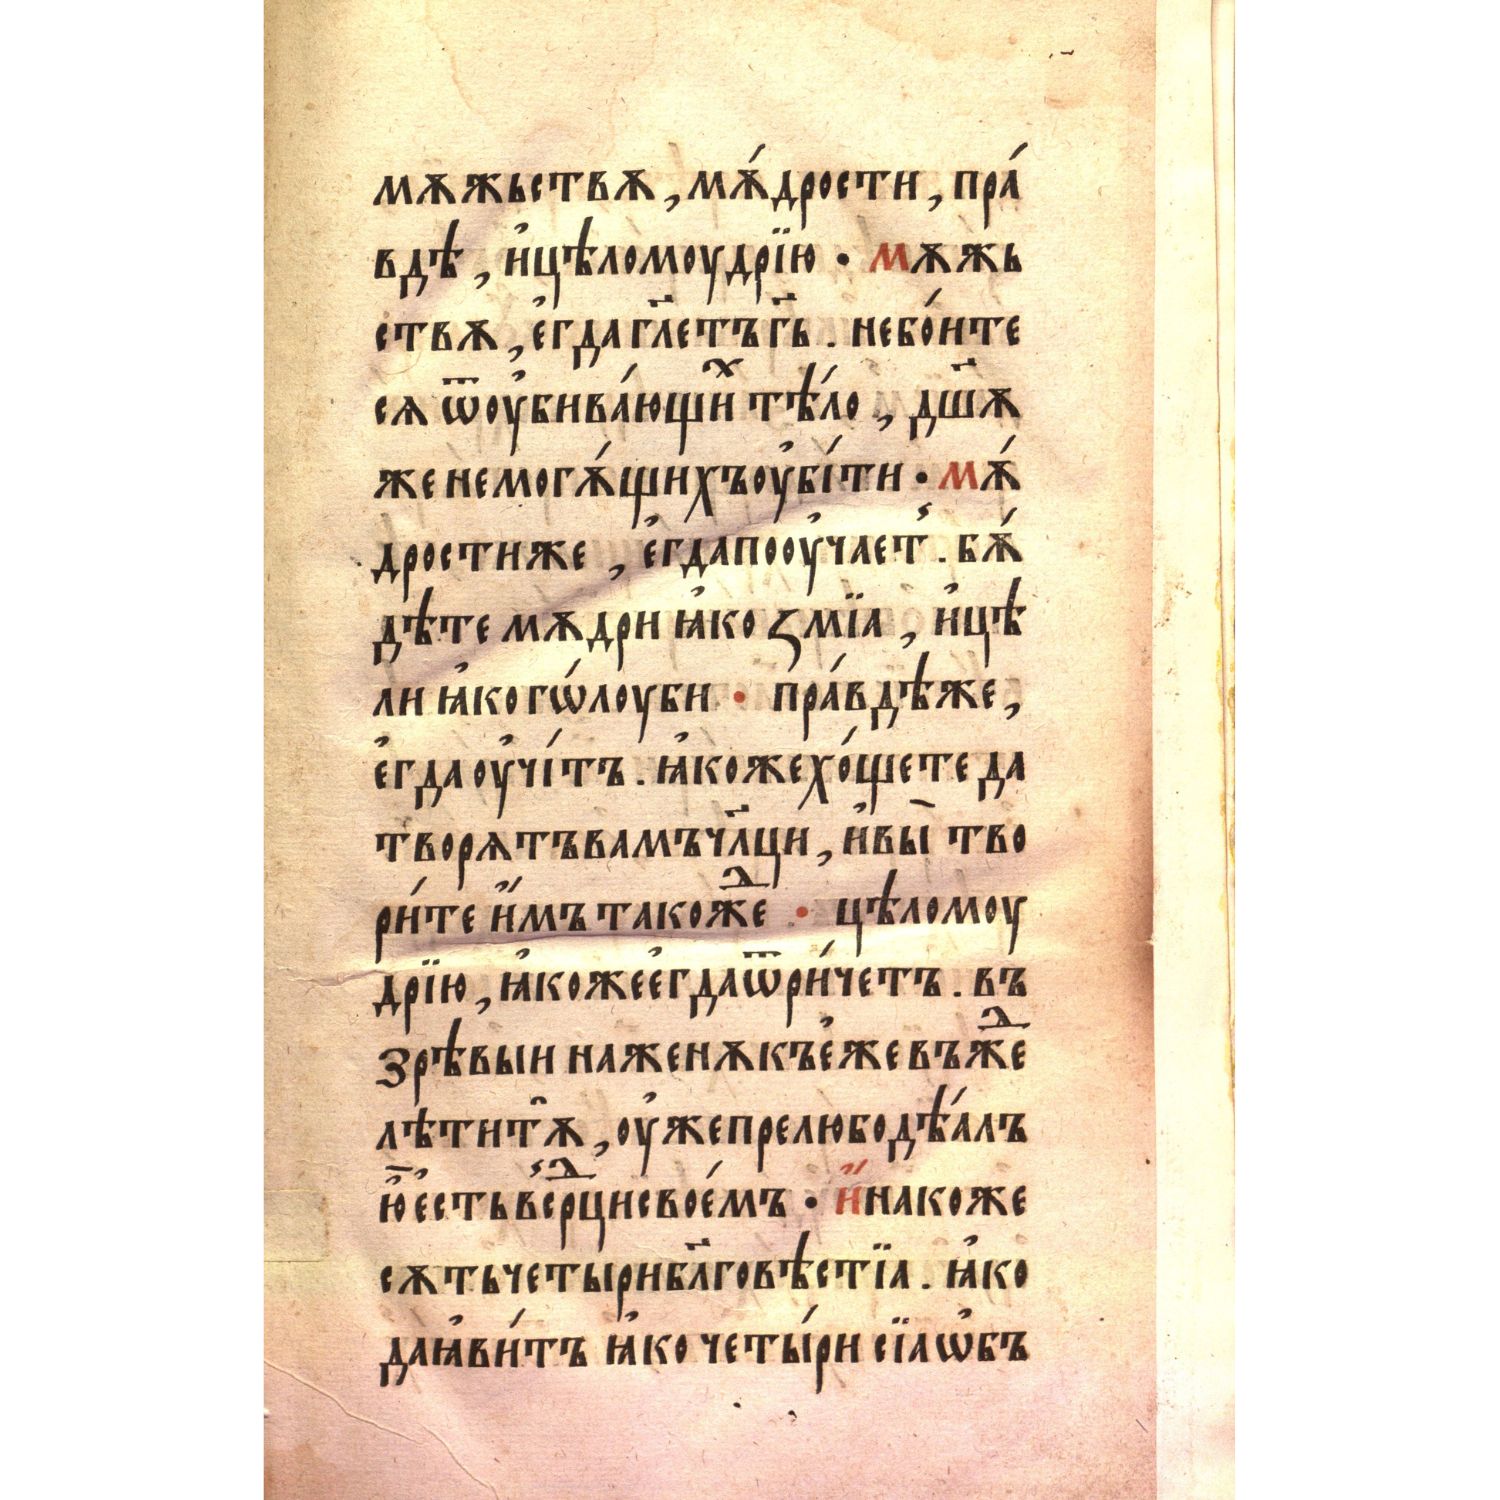 мѫжьствѫ, мѫ́дрости, пра́
вдѣ, и҆цѣломоудрїю · мѫжь
ствѫ, е҆гдагл҃етъгь҃. небо́ите
сѧ ѿоу҆бива́ющи҆ⷯ тѣ́ло, дш҃ѫ
женемогѫ́щихъоу҆бі́ти · мѫ́
дростиже, е҆гдапооу҆чает̾. бѫ́
дѣте мѫдри ꙗ҆ко ꙁмїа, и҆цѣ
ли ꙗ҆когѡ́лоуби · пра́вдѣже,
е҆гдаоу҆чі́тъ. ꙗ҆кожехо́щете да
творѧтъвамъчл҃ци, и҆вы̀ тво
ри́те и҆̀мъ такоⷤде · цѣломоу
дрїю, ꙗ҆кожее҆гдаѿри́четъ. въ
ꙁрѣвыи наженѫкъе҆жевъжⷣе
лѣтитⷭѧ, оу҆жепрелюбодѣ́алъ
ю҆̀ е҆стьвс̾рⷣцисвое́мъ · и҆́накоже
сѫтьчетырибл҃говѣстїа. ꙗ҆ко
даꙗ҆ви́тъ ꙗ҆ко четы́ри сїаѡ҆бъ